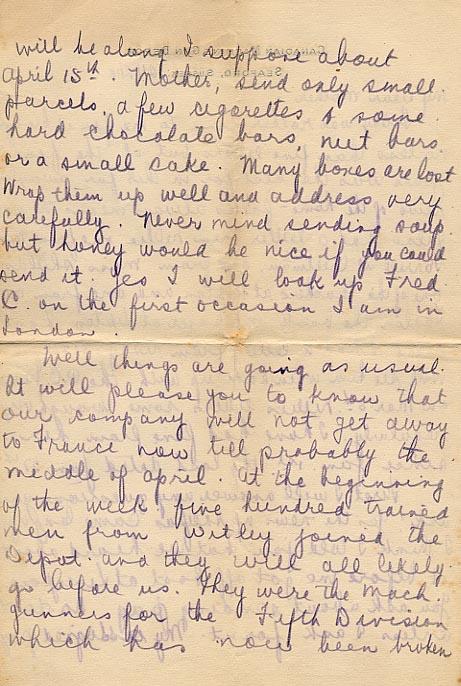 will be along I suppose about
April 15th. Mother, send only small
parcels, a few cigarettes & some
hard chocolate bars, nut bars
or a small cake. Many boxes are lost
Wrap them up well and address very
carefully. Never mind sending soup
but honey would be nice if you could
send it. Yes I will look up Fred
C. on the first occasion I am in
London.
Well things are going as usual.
It will please you to know that
our company will not get away
to France now till probably the
middle of April. At the beginning
of the week five hundred trained
men from Witley joined the
Depot and they will all likely
go before us. They were the Mach.
gunners for the Fifth Division
which has now been broken